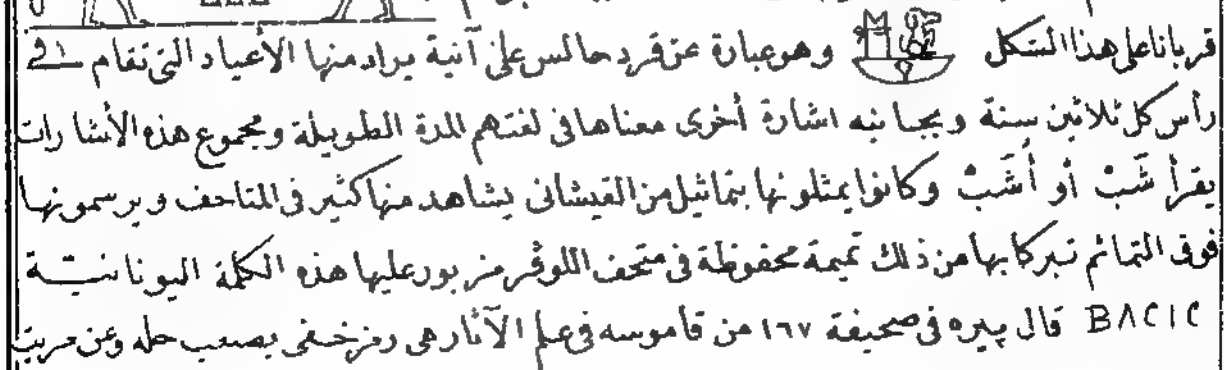 قربانا على هذا الشكل وهو عبارة عن قرد جالس على آنية يراد منها الأعياد التى تقام فى
رأس كل ثلاثين سنة وبجانبه اشارة أخرى معناها فى لغتهم المدة الطويلة ومجموع هذه الأشارات
يقرأ شَبْ أو أُشَبْ وكانوا يمثلونها بتماثيل من القيشانى يشاهد منها كثير فى المتاحف ويرسمونها
فوق التمائم تبركا بها من ذلك تميمة محفوظة فى متحف اللوڤر مزبور عليها هذه الكلمة اليونانية
BACIC قال پيره فى صحيفة ١٦٧ من قاموسه فى علم الآثار هى رمز خفى يصعب حله وعن مريت